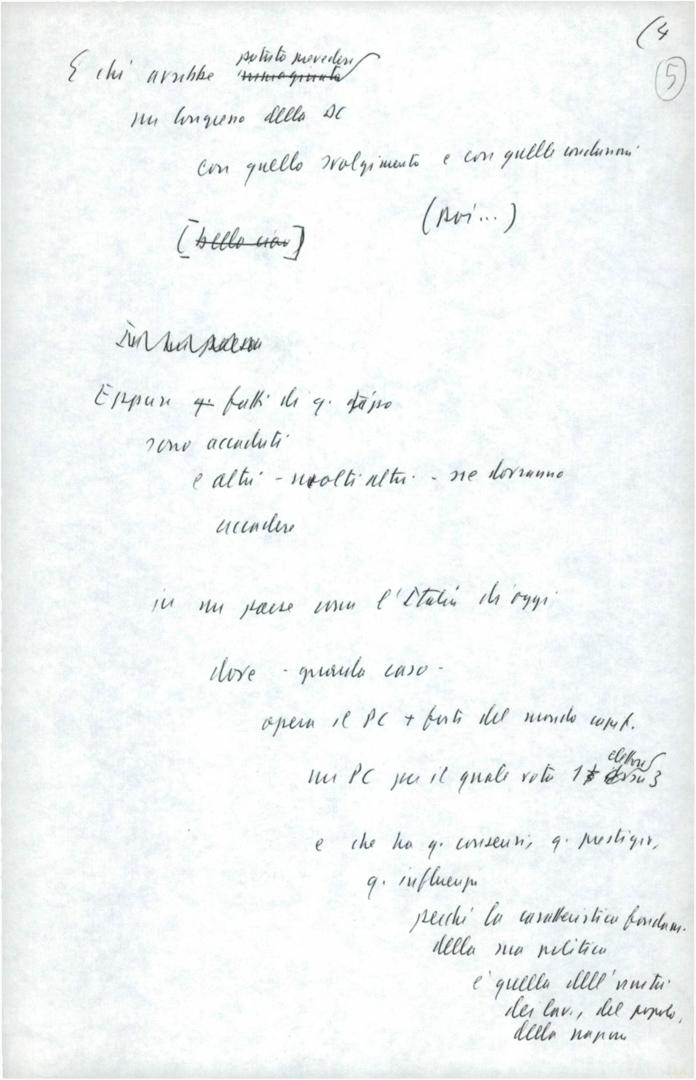 (4
5
potuto prevedere
E chi avrebbe immaginato
un Congresso della DC
con quello svolgimento e con quelle conclusioni
(Poi...)
[bella ciao]
Eppure q. fatti di q. tipo
sono accaduti
e altri - molti altri - ne dovranno
accadere
in un paese come l'Italia di oggi
dove - guarda caso -
opera il PC + forte del mondo capit.
elettore
un PC per il quale vota 1 su 3
e che ha q. consensi, q. prestigio,
q. influenza
perché la caratteristica fondam.
della sua politica
è quella dell'unità
dei lav., del popolo,
della nazione